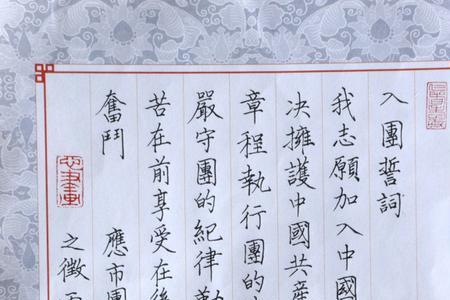 入團誓詞
我志願加入中國
决擁護中國共産
章程執行團的
嚴守團的紀律勤
苦在前享受在後
奮鬥 應市團
之徵